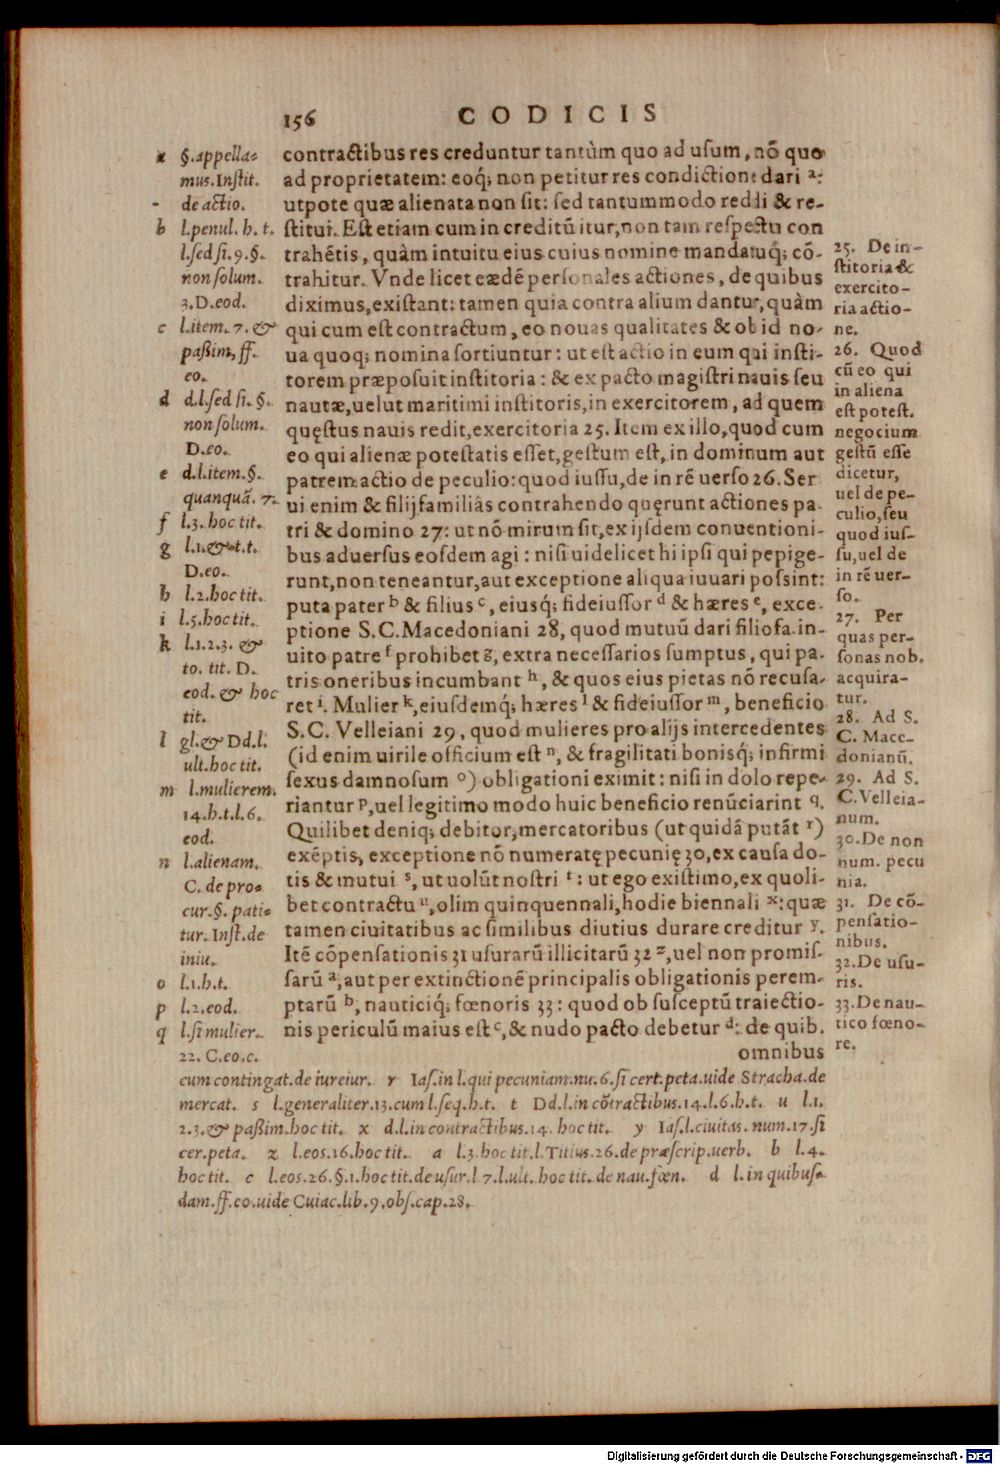 156 CODICIS
contractibus res creduntur tantùm quo ad usum, nō quo
ad proprietatem: eoq́; non petitur res condictione dari ᵃ:
utpote quæ alienata non sit: sed tantummodo reddi & re-
stitui. Est etiam cum in creditū itur, non tam respectu con
trahētis, quàm intuitu eius cuius nomine mandatuq́; cō-
trahitur. Vnde licet eædē personales actiones, de quibus
diximus, existant: tamen quia contra alium dantur, quàm
qui cum est contractum, eo nouas qualitates & ob id no-
ua quoq; nomina sortiuntur: ut est actio in eum qui insti-
torem præposuit institoria: & ex pacto magistri nauis seu
nautæ, uelut maritimi institoris, in exercitorem, ad quem
quęstus nauis redit, exercitoria 25. Item ex illo, quod cum
eo qui alienæ potestatis esset, gestum est, in dominum aut
patrem actio de peculio: quod iussu, de in rē uerso 26. Ser
ui enim & filijfamiliâs contrahendo quęrunt actiones pa-
tri & domino 27: ut nō mirum sit, ex ijsdem conuentioni-
bus aduersus eosdem agi: nisi uidelicet hi ipsi qui pepige-
runt, non teneantur, aut exceptione aliqua iuuari possint:
puta pater ᵇ & filius ᶜ, eiusq́; fideiussor ᵈ & hæres ᵉ, exce-
ptione S.C. Macedoniani 28, quod mutuū dari filiofa. in-
uito patre ᶠ prohibet ᵍ, extra necessarios sumptus, qui pa-
tris oneribus incumbant ʰ, & quos eius pietas nō recusa-
ret ⁱ. Mulier ᵏ, eiusdemq́; hæres ˡ & fideiussor ᵐ, beneficio
S.C. Velleiani 29, quod mulieres pro alijs intercedentes
(id enim uirile officium est ⁿ, & fragilitati bonisq́; infirmi
sexus damnosum ᵒ) obligationi eximit: nisi in dolo repe-
riantur ᵖ, uel legitimo modo huic beneficio renūciarint q.
Quilibet deniq; debitor, mercatoribus (ut quidā putāt ʳ)
exēptis, exceptione nō numeratę pecunię 30, ex causa do-
tis & mutui ˢ, ut uolūt nostri ᵗ: ut ego existimo, ex quoli-
bet contractu ᵘ, olim quinquennali, hodie biennali ˣ: quæ
tamen ciuitatibus ac similibus diutius durare creditur ʸ.
Itē cōpensationis 31 usurarū illicitarū 32 ᶻ, uel non promis-
sarū ᵃ, aut per extinctionē principalis obligationis perem-
ptarū ᵇ, nauticiq́; fœnoris 33: quod ob susceptū traiectio-
nis periculū maius est ᶜ, & nudo pacto debetur ᵈ: de quib.
omnibus
a §.appella-
mus. Instit.
de actio.
b l.penul. h. t.
l.sed si. 9. §.
non solum.
3. D. eod.
c l.item. 7. &
paßim, ff.
eo.
d d.l.sed si. §.
non solum.
D.eo.
e d.l.item. §.
quanquā. 7.
f l.3. hoc tit.
g l.1. & t.t.
D.eo.
h l.2. hoc tit.
i l.5. hoc tit.
k l.1.2.3. &
to. tit. D.
eod. & hoc
tit.
l gl. & Dd.l.
ult. hoc tit.
m l.mulierem.
14.h.t.l.6.
eod.
n l.alienam.
C. de pro-
cur. §. pati-
tur. Inst. de
iniu.
o l.1.h.t.
p l.2.eod.
q l.si mulier.
22. C.eo.c.
cum contingat. de iureiur. r Ias. in l. qui pecuniam. nu. 6. si cert. peta. uide Stracha. de
mercat. s l.generaliter. 13. cum l. seq. h.t. t Dd.l. in cōtractibus. 14. l.6.h.t. u l.1.
2.3. & paßim. hoc tit. x d.l. in contractibus. 14. hoc tit. y Ias. l. ciuitas. num. 17. si
cer. peta. z l.eos. 16. hoc tit. a l.3. hoc tit. l. Titius. 26. de præscrip. uerb. b l.4.
hoc tit. c l.eos. 26. §. 1. hoc tit. de usur. l 7. l. ult. hoc tit. de nau. fœn. d l. in quibus-
dam. ff. eo. uide Cuiac. lib. 9. obs. cap. 28.
25. De in-
stitoria &
exercito-
ria actio-
ne.
26. Quod
cū eo qui
in aliena
est potest.
negocium
gestū esse
dicetur,
uel de pe-
culio, seu
quod ius-
su, uel de
in rē uer-
so.
27. Per
quas per-
sonas nob.
acquira-
tur.
28. Ad S.
C. Mace-
donianū.
29. Ad S.
C. Velleia-
num.
30. De non
num. pecu
nia.
31. De cō-
pensatio-
nibus.
32. De usu-
ris.
33. De nau-
tico fœno-
re.
Digitalisierung gefördert durch die Deutsche Forschungsgemeinschaft - DFG